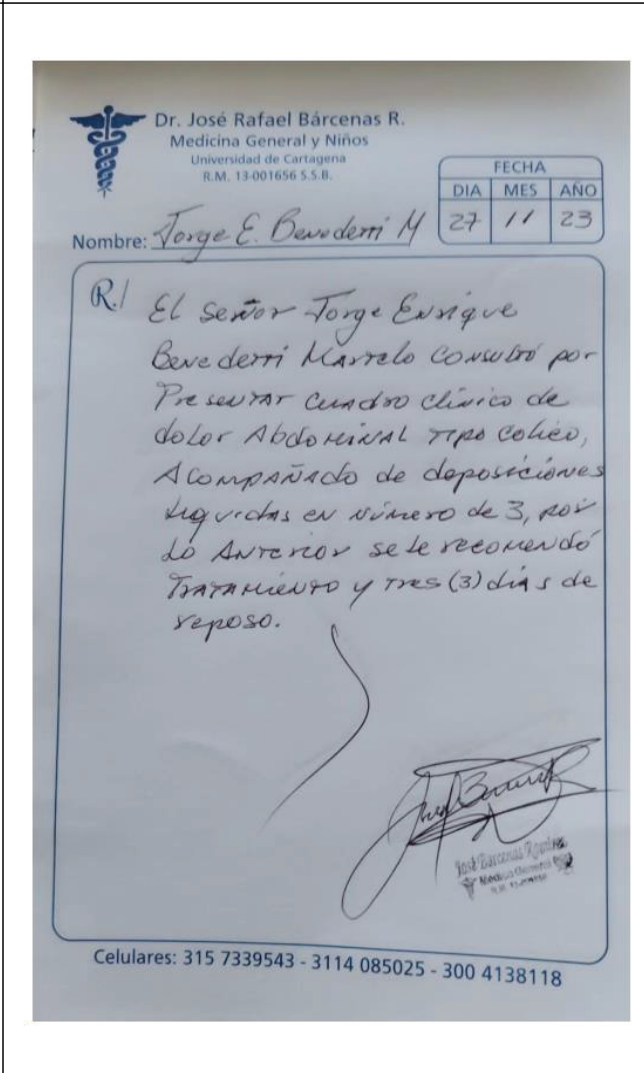 Dr. José Rafael Bárcenas R.
Medicina General y Niños
Universidad de Cartagena
R.M. 13-001656 S.S.B.
FECHA
DIA MES AÑO
27 11 23
Nombre: Jorge E. Benedetti M
R./
El señor Jorge Enrique
Benedetti Martelo consultó por
Presentar cuadro clínico de
dolor Abdominal tipo cólico,
Acompañado de deposiciones
líquidas en número de 3, por
lo Anterior se le recomendó
Tratamiento y tres (3) días de
reposo.
José Bárcenas Ramírez
Médico General
R.M.
Celulares: 315 7339543 - 3114 085025 - 300 4138118